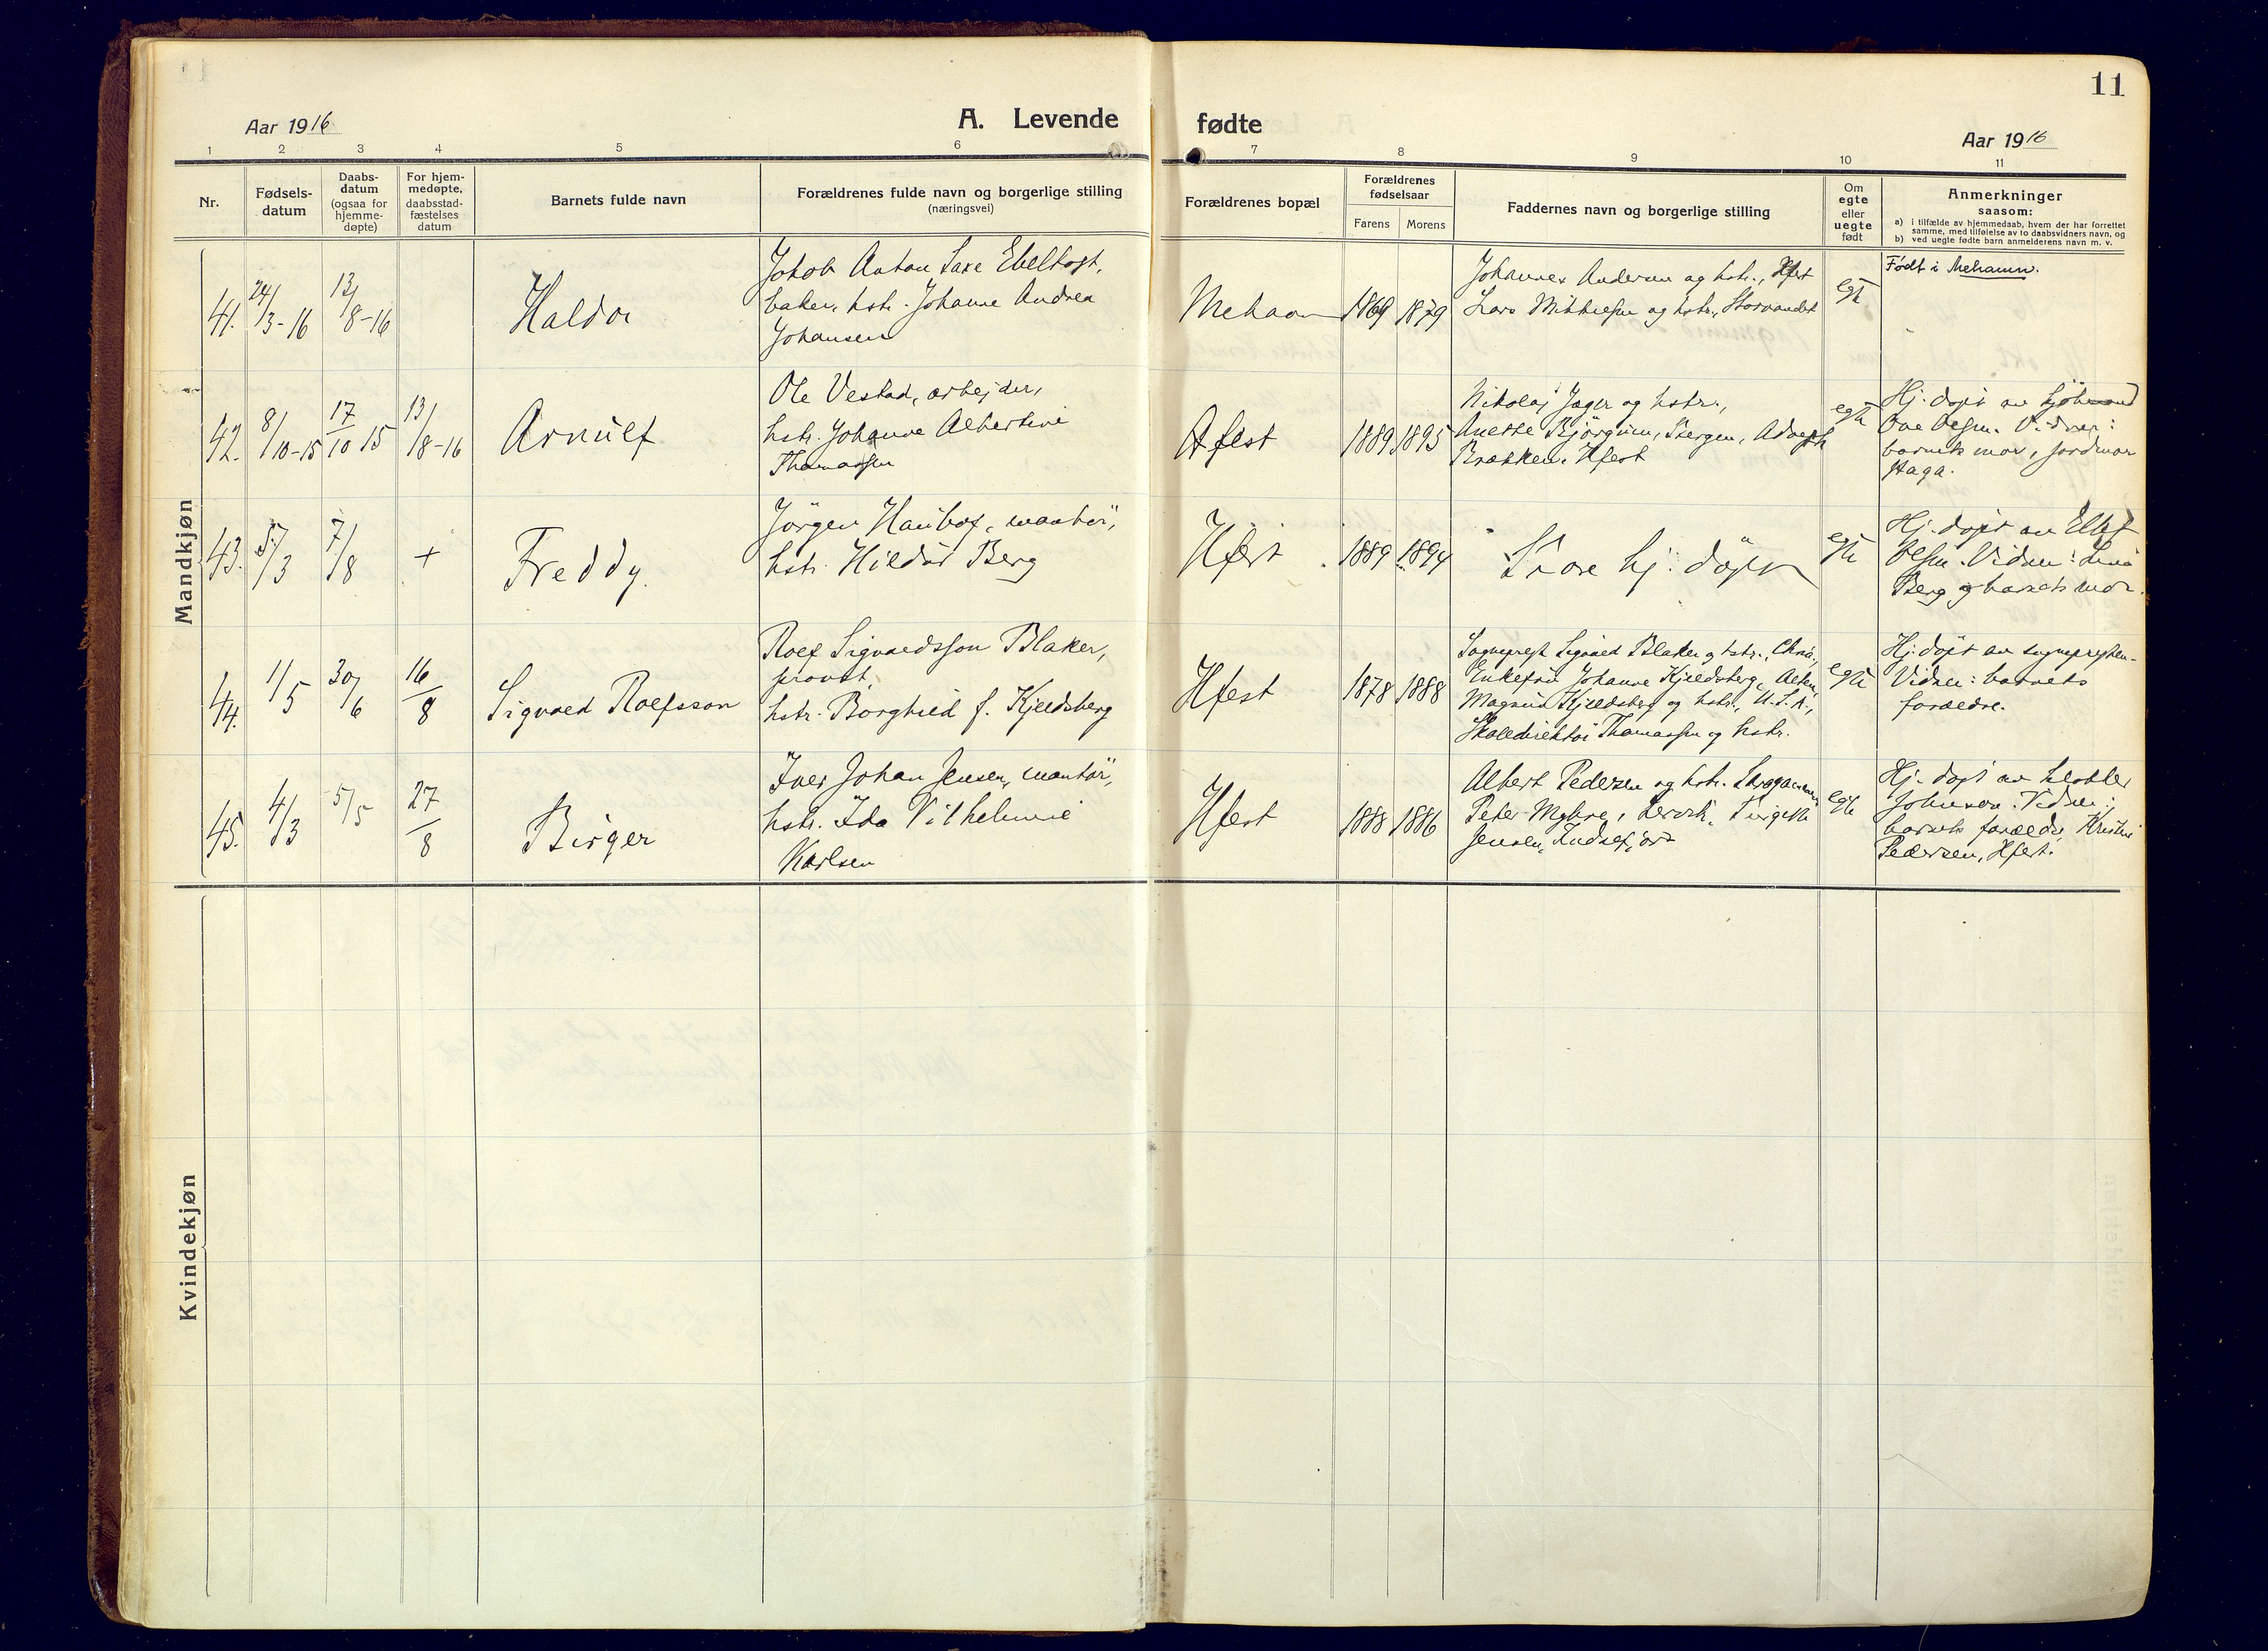 11
Aar 1916
A. Levende fødte
Aar 1916
1 2 3 4 5 6 7 8 9 10 11
Nr.
Fødsels-
datum
Daabs-
datum
(ogsaa for
hjemme-
døpte)
For hjem-
medøpte,
daabsstad-
fæstelses
datum
Barnets fulde navn
Forældrenes fulde navn og borgerlige stilling
(næringsvei)
Forældrenes bopæl
Forældrenes
fødselsaar
Farens Morens
Faddernes navn og borgerlige stilling
Om
egte
eller
uegte
født
Anmerkninger
saasom:
a) i tilfælde av hjemmedaab, hvem der har forrettet
samme, med tilføielse av to daabsvidners navn, og
b) ved uegte fødte barn anmelderens navn m. v.
Mandkjøn
41. 24/3-16 13/8-16
Haldor
Jakob Anton Saxe Ebeltoft,
baker, hstr. Johanne Andrea
Johansen
Mehavn
1869 1879
Johannes Andersen og hstr., Hfest
Lars Mikkelsen og hstr., Storvandet
egte
Født i Mehamn.
42. 8/10-15 17/10 15 13/8-16
Arnulf
Ole Vestad, arbejder,
hstr. Johanne Albertine
Thomassen
Hfest
1889 1895
Nikolaj Jæger og hstr.,
Anette Bjørgum, Bergen, Adolph
Brækken, Hfest
egte
Hj. døpt av
Ove Olsen. Vidner:
barnets mor, jordmor
Haga.
43. 5/3 7/8 +
Freddy.
Jörgen Haubof, montör,
hstr. Hildur Berg
Hfest
1889 1894
hj. döpt
egte
Hj. døpt av
Olsen. Vidner: Lina
Berg og barnets mor.
44. 1/5 30/6 16/8
Sigvald Rolfsson
Rolf Sigvaldsson Blaker,
provst,
hstr. Borghild f. Kjeldsberg
Hfest
1878 1888
Sogneprest Sigvald Blaker og hstr., Chra.,
Enkefru Johanne Kjeldsberg, Alten,
Magnus Kjeldsberg og hstr., U.S.A.,
Skoledirektör Thomassen og hstr.
egte
Hj. döpt av sognepresten.
Vidner: barnets
forældre.
45. 4/3 5/5 27/8
Birger
Iver Johan Jensen, montör,
hstr. Ida Vilhelmine
Karlsen
Hfest
1888 1886
Albert Pedersen og hstr.
Peter Myhre, Birgitte
Jensen,
egte
Hj. døpt av
Johnson. Vidner:
barnets forældre, Kristine
Pedersen, Hfest.
Kvindekjøn